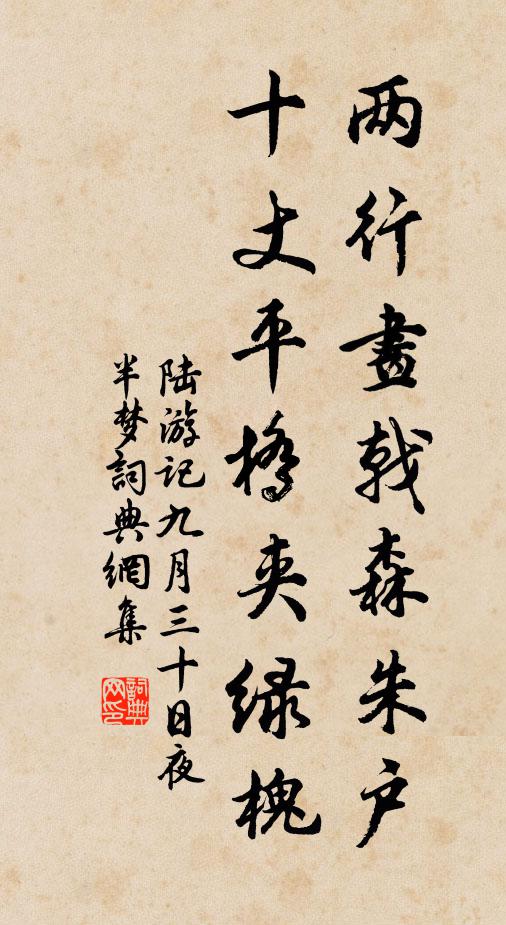 两行畫戟森朱户
十丈平橋夹绿槐
陆游记九月三十日夜
半梦詞典網集
詞典
网印